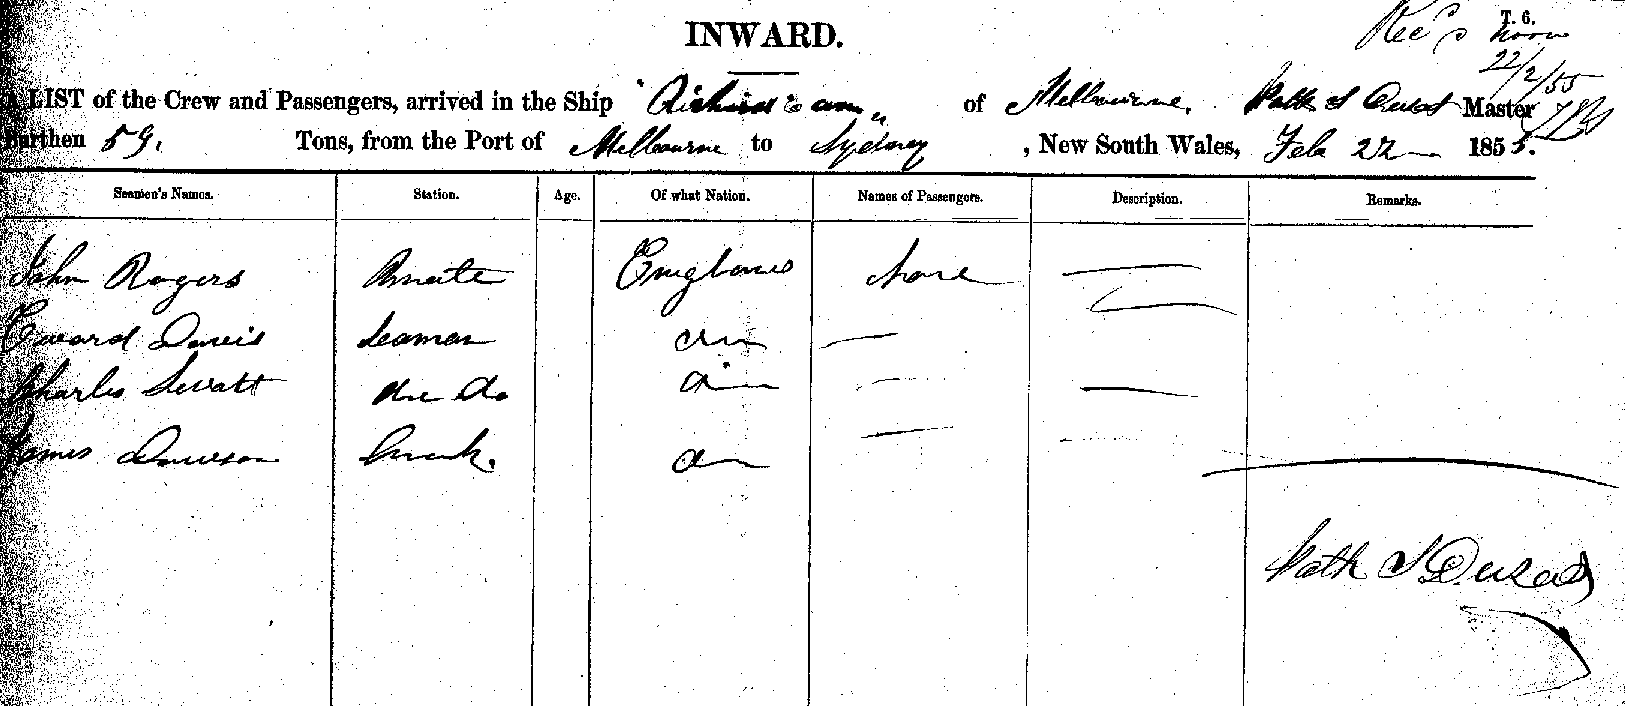 T. 6.
INWARD.
Rec'd noon
22/2/55
A LIST of the Crew and Passengers, arrived in the Ship "Richard" of Melbourne, Nath S Master
Burthen 59. Tons, from the Port of Melbourne to Sydney, New South Wales, Feb 22 1855.
Seamen's Names. Station. Age. Of what Nation. Names of Passengers. Description. Remarks.
John Rogers Mate England None
Edward Davis Seaman do
Charles do do
James Dawson Cook. do
Nath S